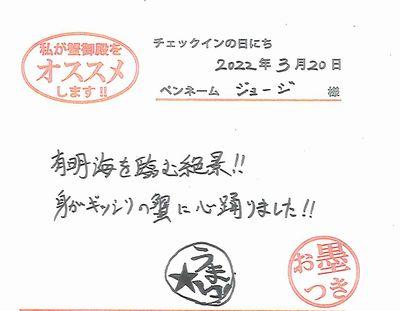 私が蟹御殿を
オススメ
します!!
チェックインの日にち
2022年3月20日
ペンネーム ジョージ 様
有明海を臨む絶景!!
身がギッシリの蟹に心踊りました!!
うまい!
★
お墨
つき